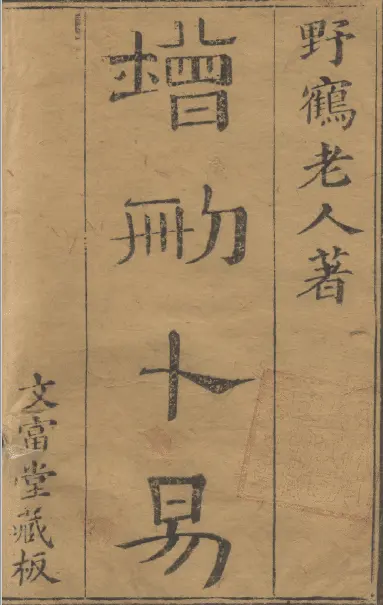 野鶴老人著
增刪卜易
文富堂藏板